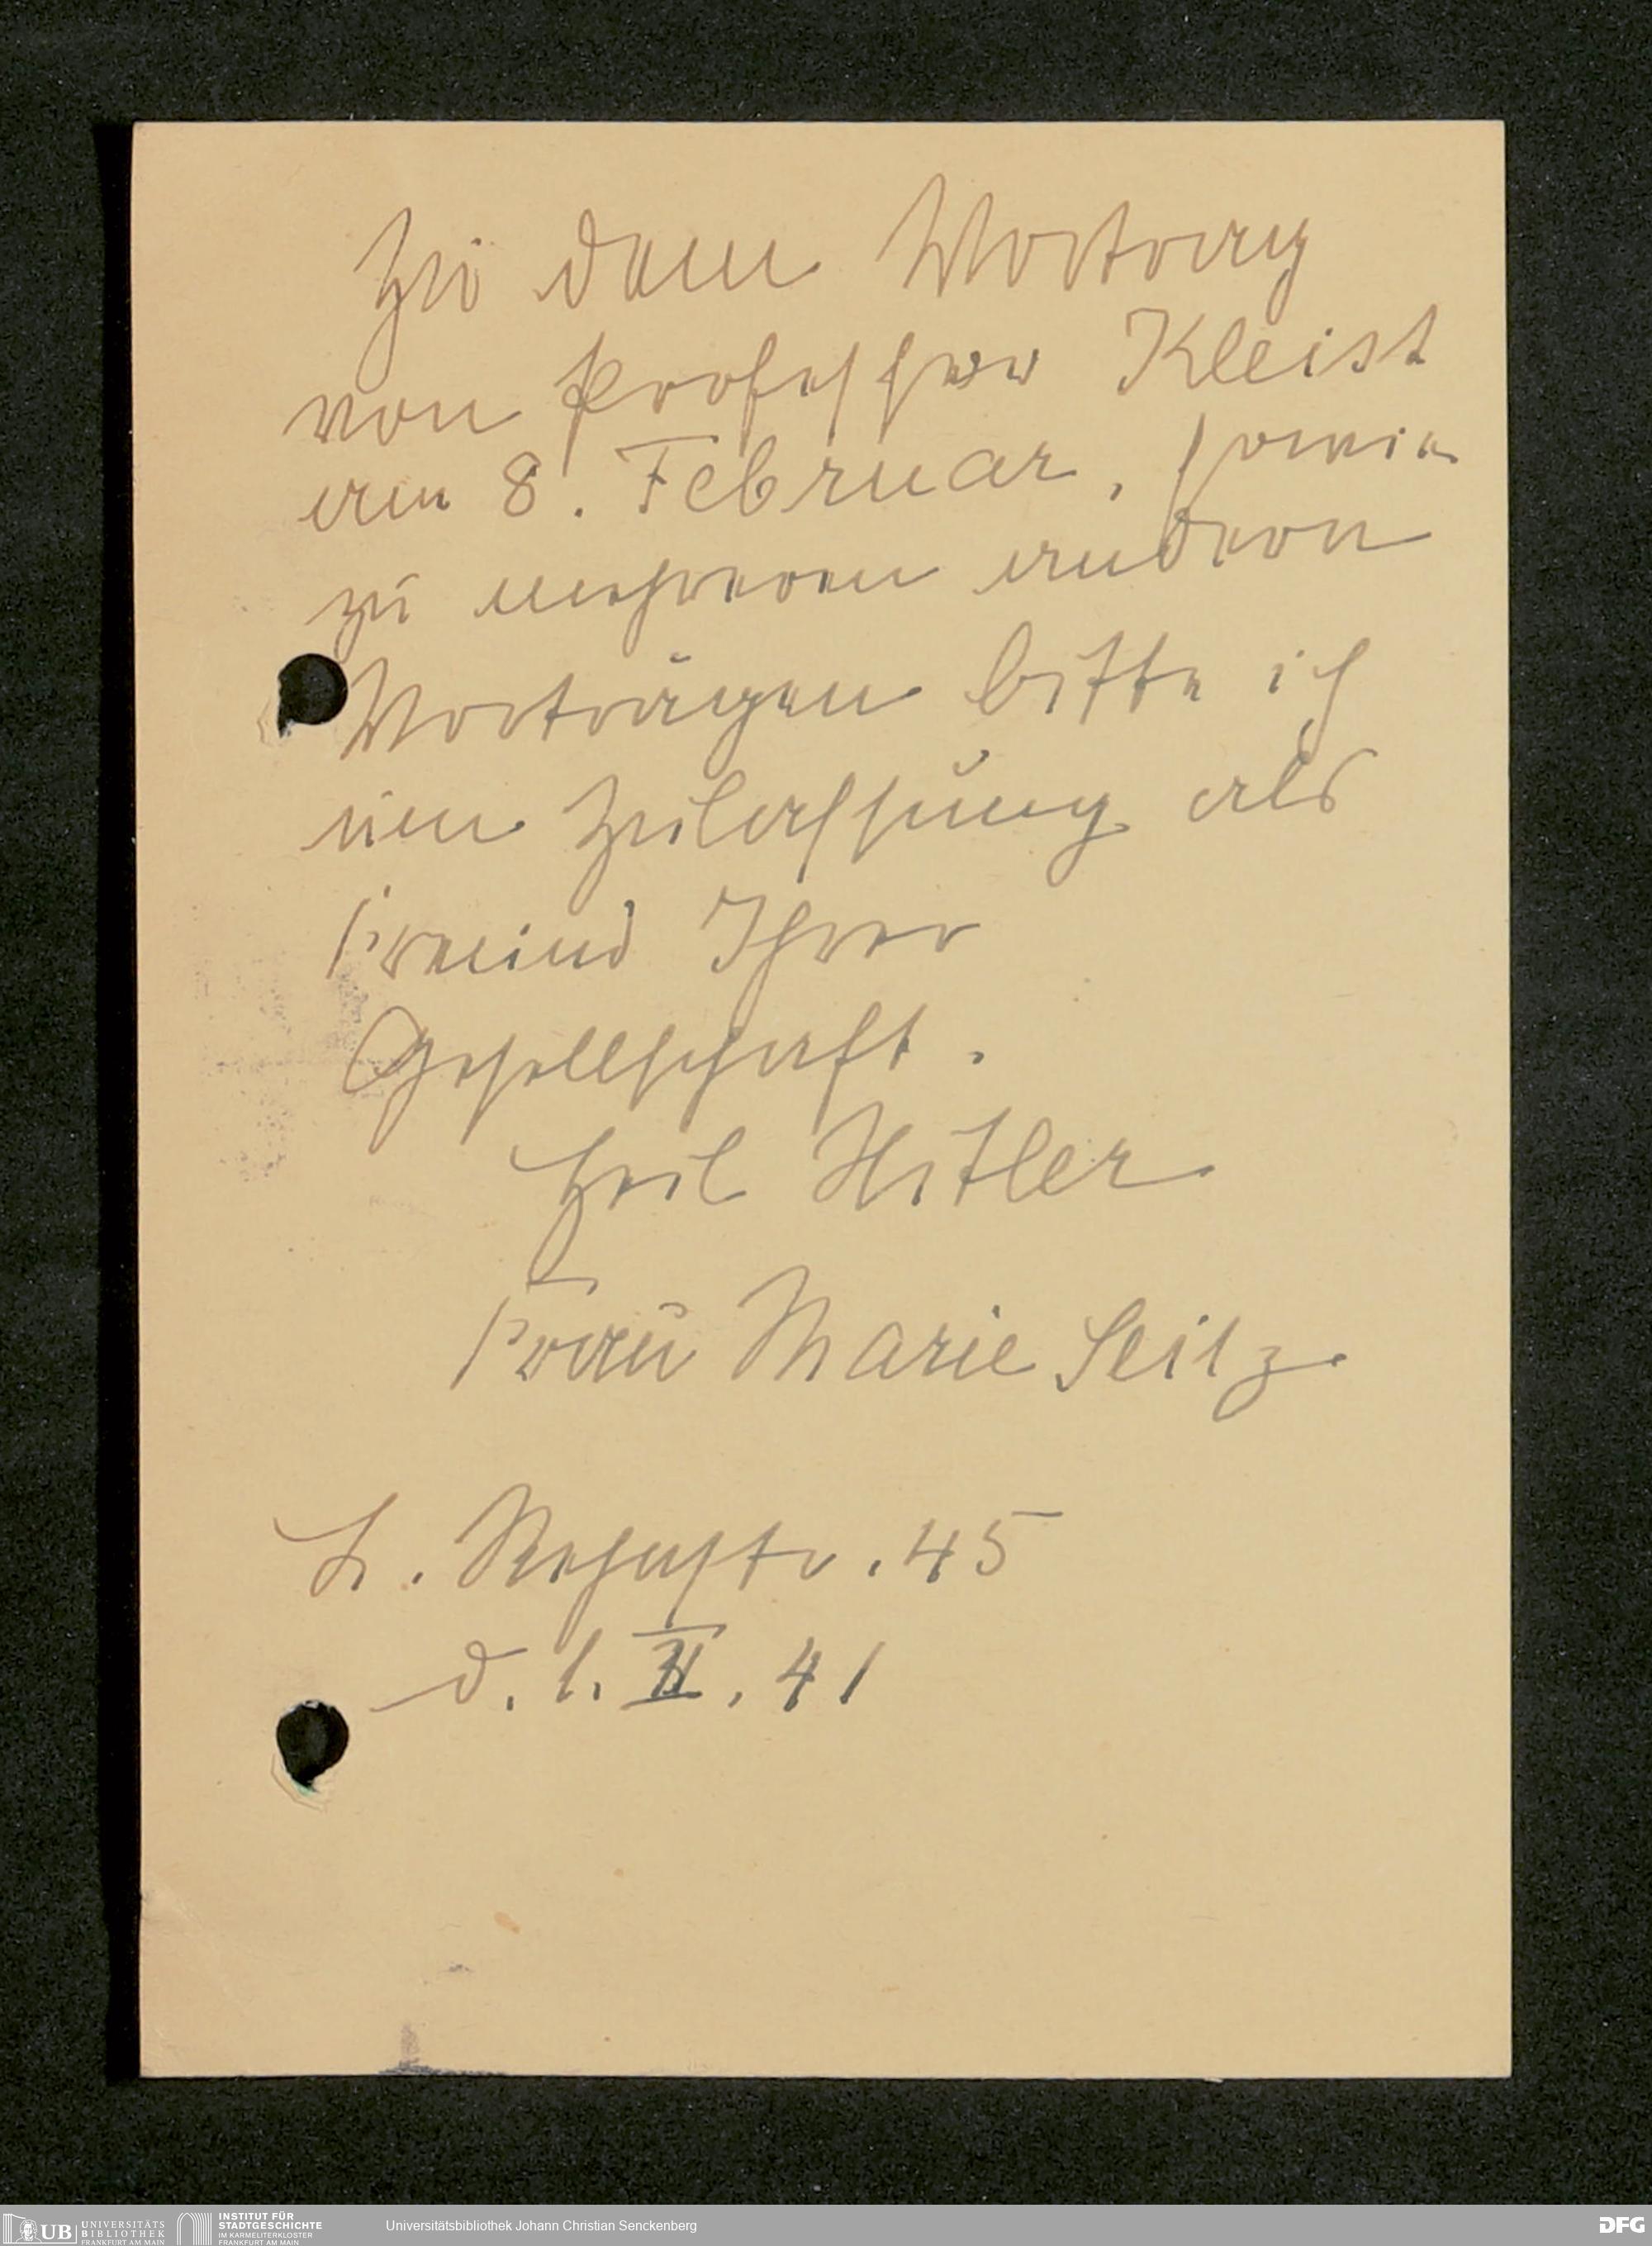 Zu dem Vortrag
von Professor Kleist
am 8. Februar, sowie
zu mehreren andern
Vorträgen bitte ich
um Zulassung als
Freund Ihrer
Gesellschaft.
Heil Hitler
Frau Marie Seitz
L. Rehnstr. 45
d. 1. II. 41
UB UNIVERSITÄTS
BIBLIOTHEK
FRANKFURT AM MAIN
INSTITUT FÜR
STADTGESCHICHTE
IM KARMELITERKLOSTER
FRANKFURT AM MAIN
Universitätsbibliothek Johann Christian Senckenberg
DFG